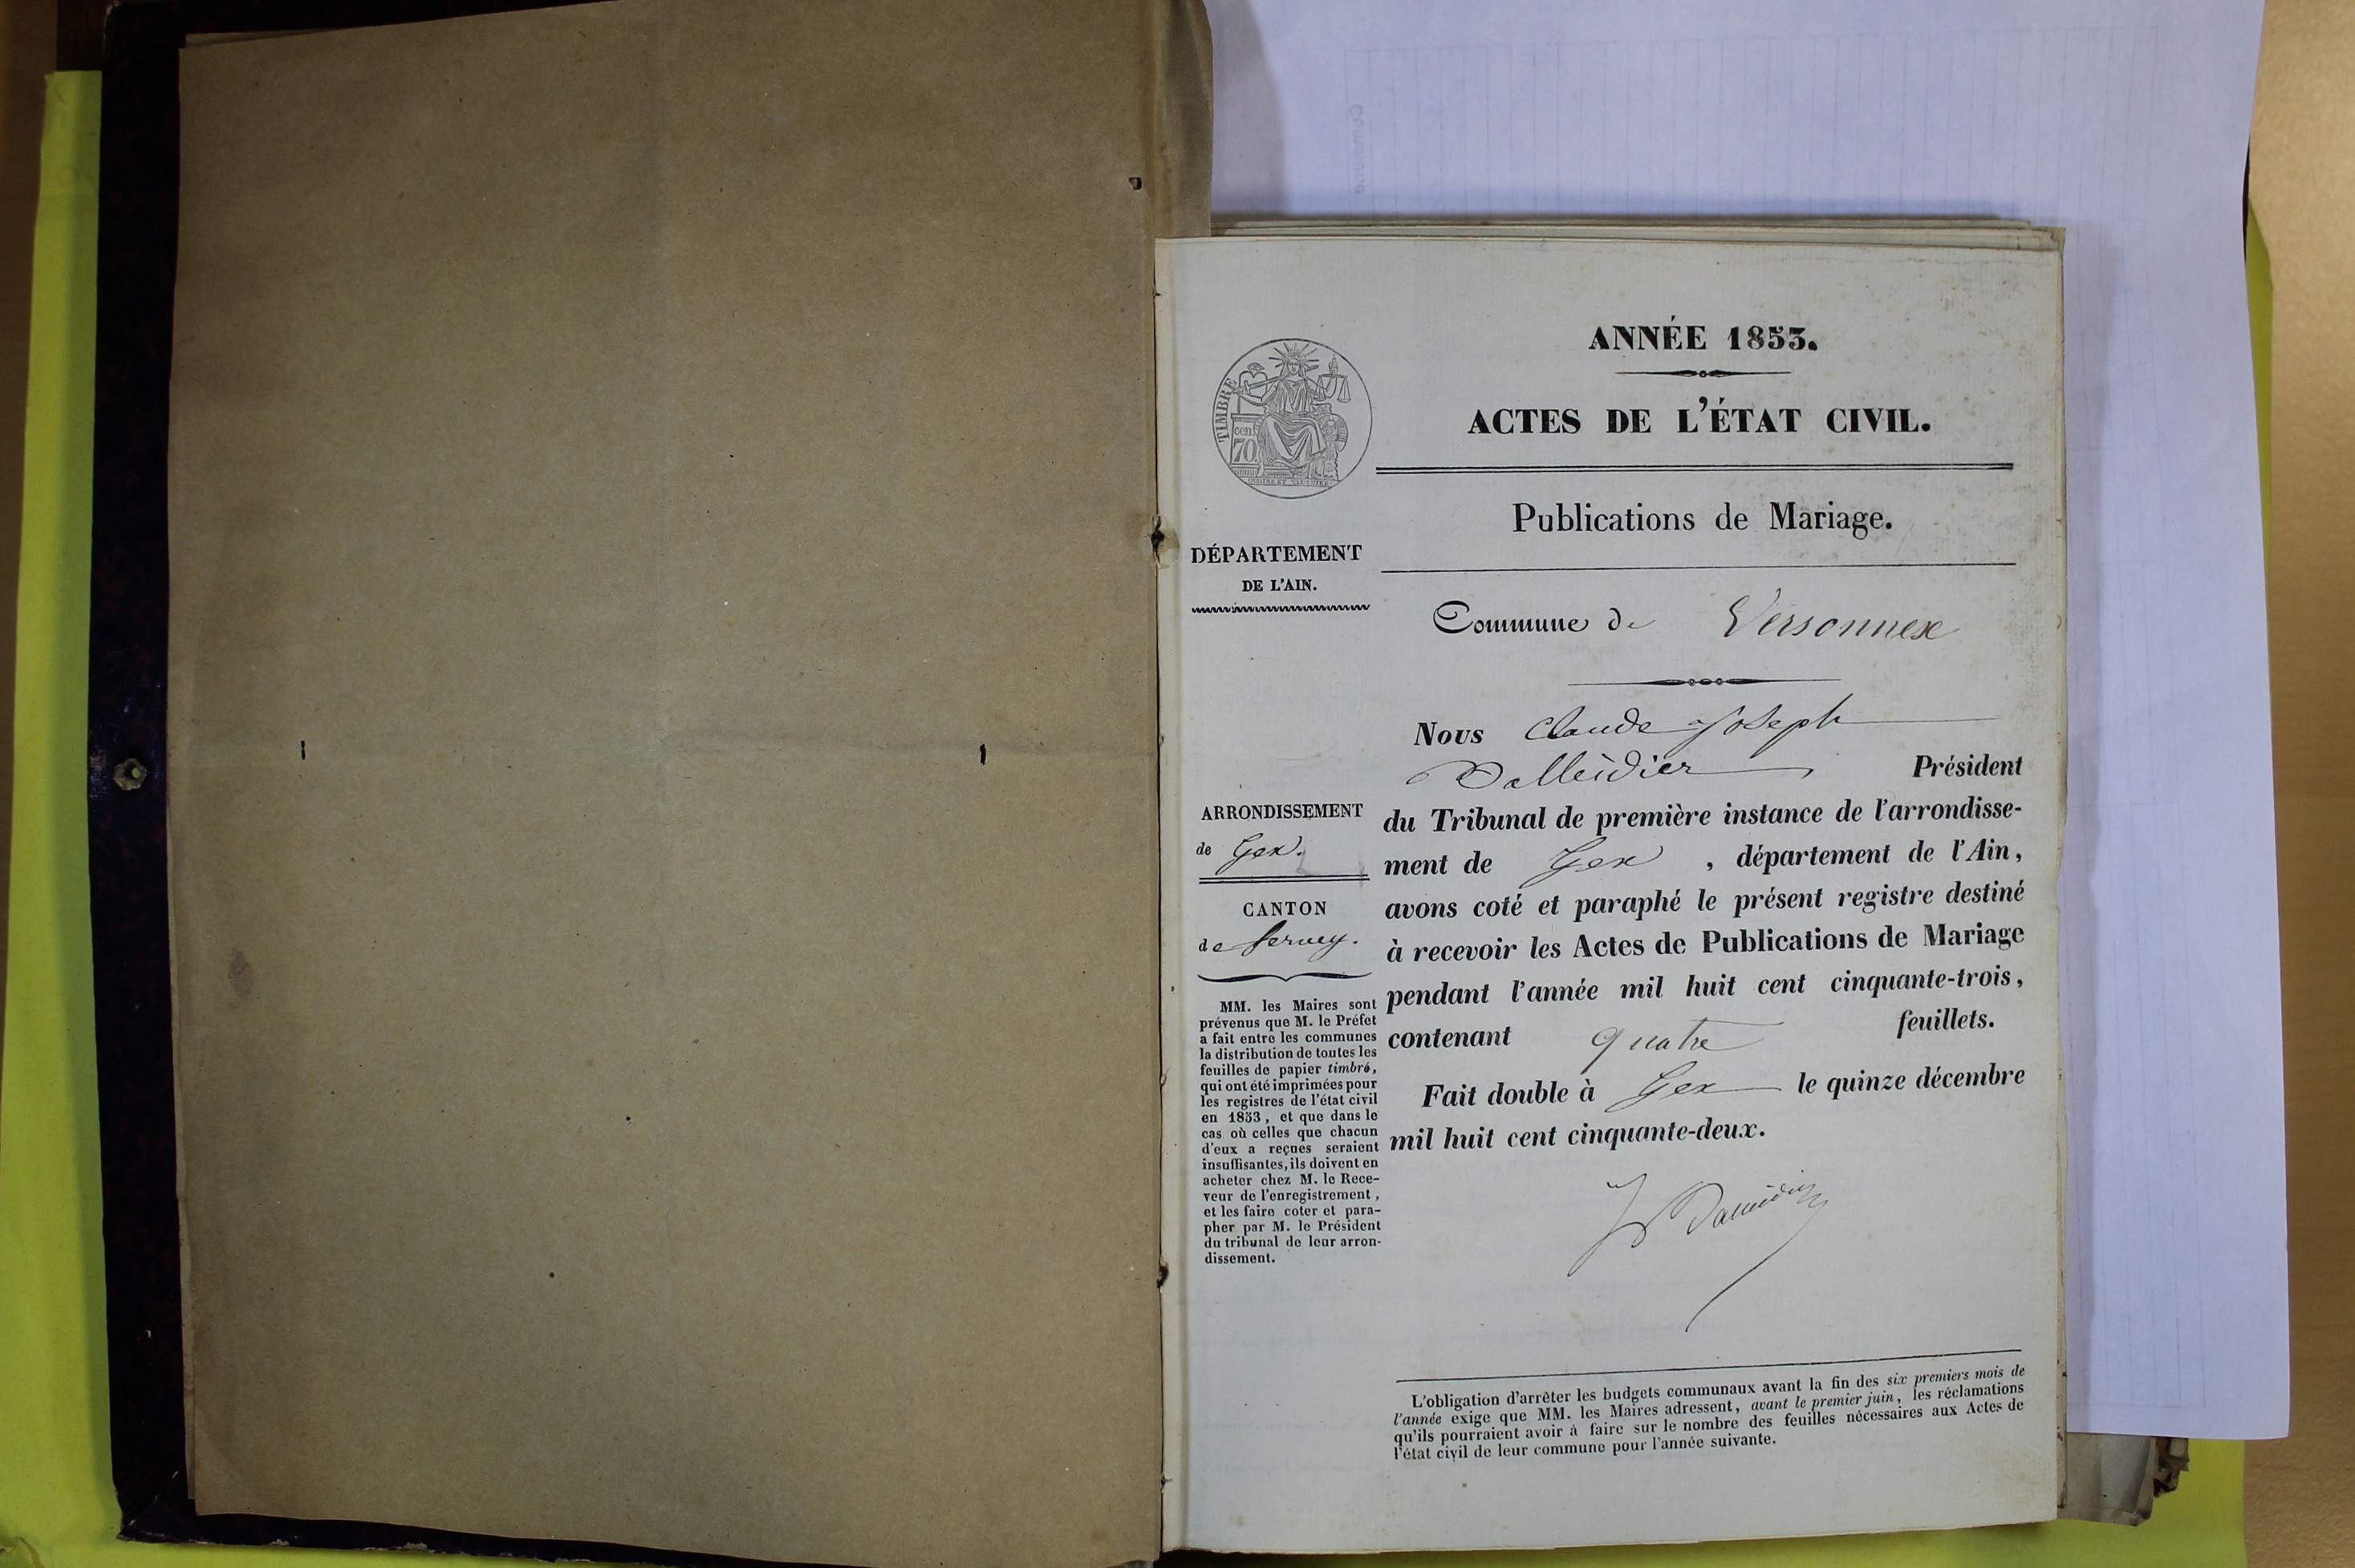 ANNÉE 1853.
ACTES DE L'ÉTAT CIVIL.
Publications de Mariage.
Commune de Versonnex
Nous Claude Joseph
Président
du Tribunal de première instance de l'arrondisse-
ment de Gex , département de l'Ain,
avons coté et paraphé le présent registre destiné
à recevoir les Actes de Publications de Mariage
pendant l'année mil huit cent cinquante-trois,
contenant quatre feuillets.
Fait double à Gex le quinze décembre
mil huit cent cinquante-deux.
TIMBRE
cen.
70.
DÉPARTEMENT
DE L'AIN.
ARRONDISSEMENT
de Gex.
CANTON
de ferney.
MM. les Maires sont
prévenus que M. le Préfet
a fait entre les communes
la distribution de toutes les
feuilles de papier timbré,
qui ont été imprimées pour
les registres de l'état civil
en 1853, et que dans le
cas où celles que chacun
d'eux a reçues seraient
insuffisantes, ils doivent en
acheter chez M. le Rece-
veur de l'enregistrement,
et les faire coter et para-
pher par M. le Président
du tribunal de leur arron-
dissement.
L'obligation d'arrêter les budgets communaux avant la fin des six premiers mois de
l'année exige que MM. les Maires adressent, avant le premier juin, les réclamations
qu'ils pourraient avoir à faire sur le nombre des feuilles nécessaires aux Actes de
l'état civil de leur commune pour l'année suivante.